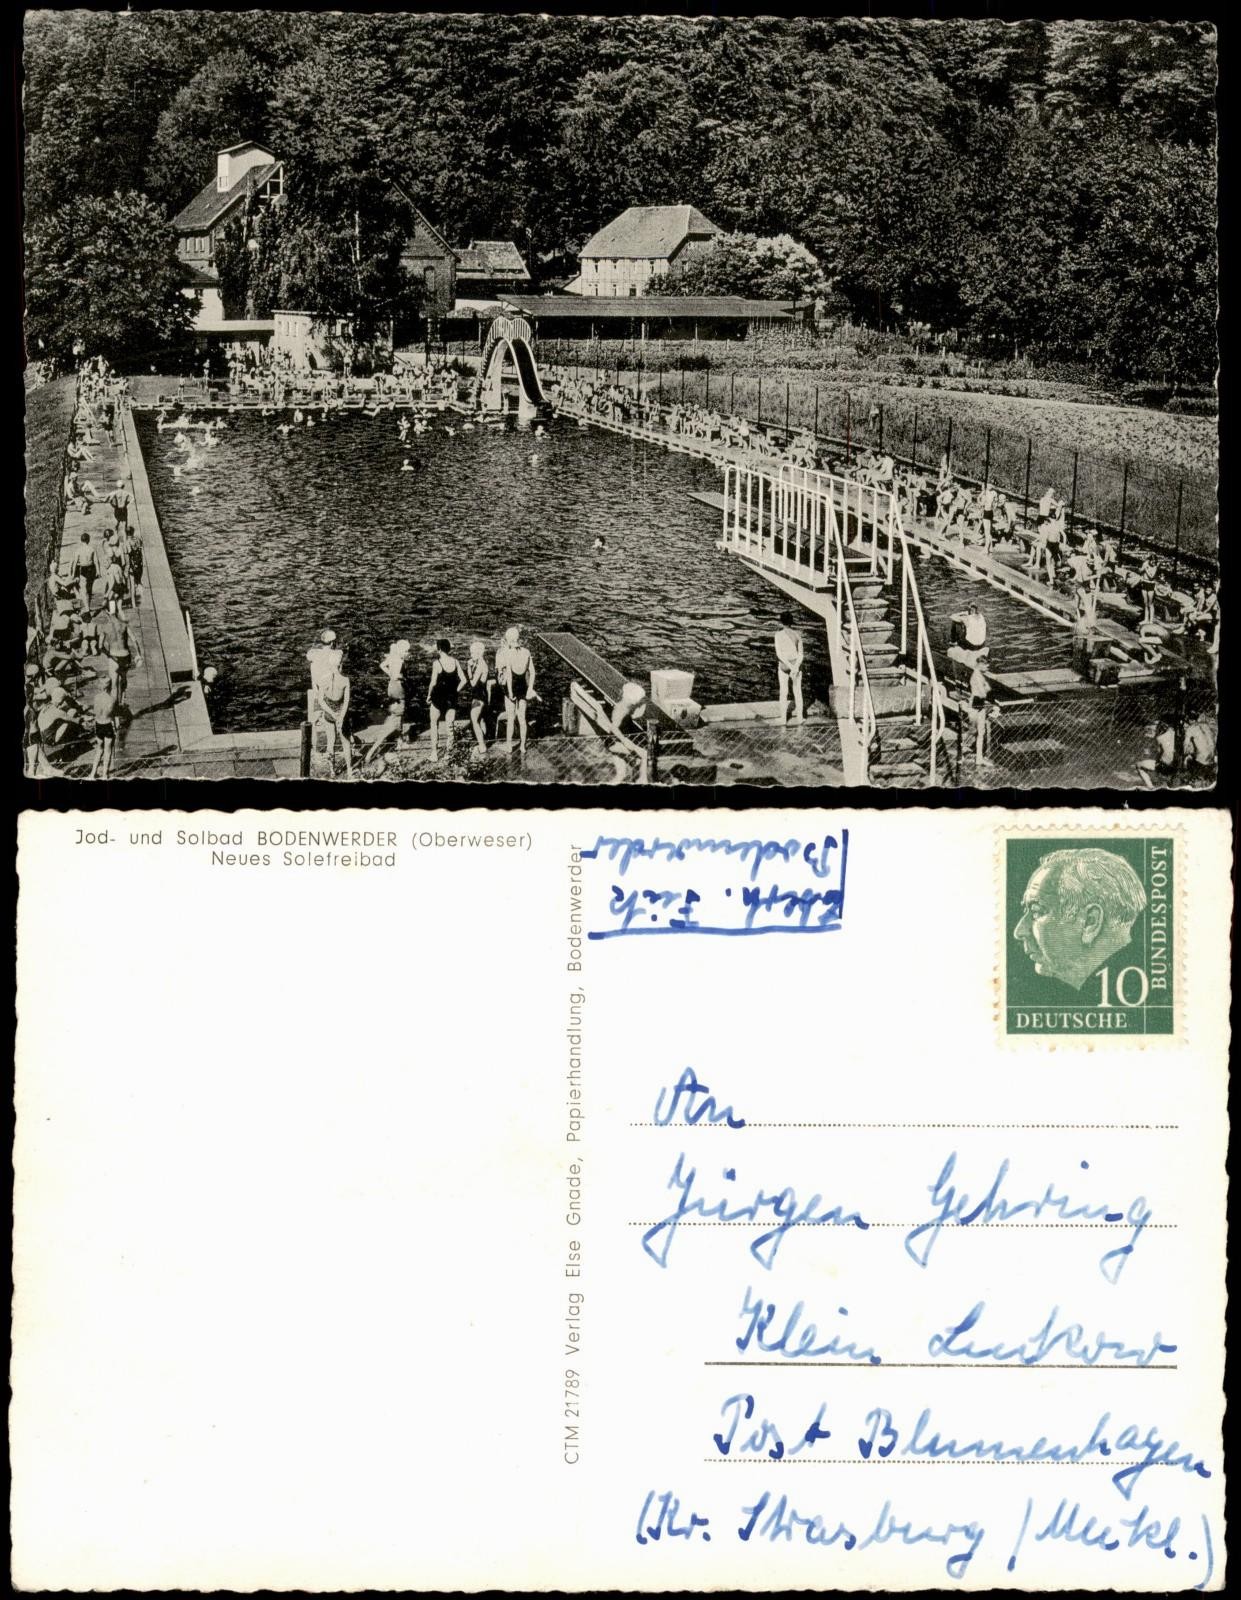 Jod- und Solbad BODENWERDER (Oberweser)
Neues Solefreibad
CTM 21789 Verlag Else Gnade, Papierhandlung, Bodenwerder
Bodenwerder
10
DEUTSCHE
BUNDESPOST
An
Jürgen Gehring
Klein Luckow
Post Blumenhagen
(Kr. Strasburg / Meckl.)